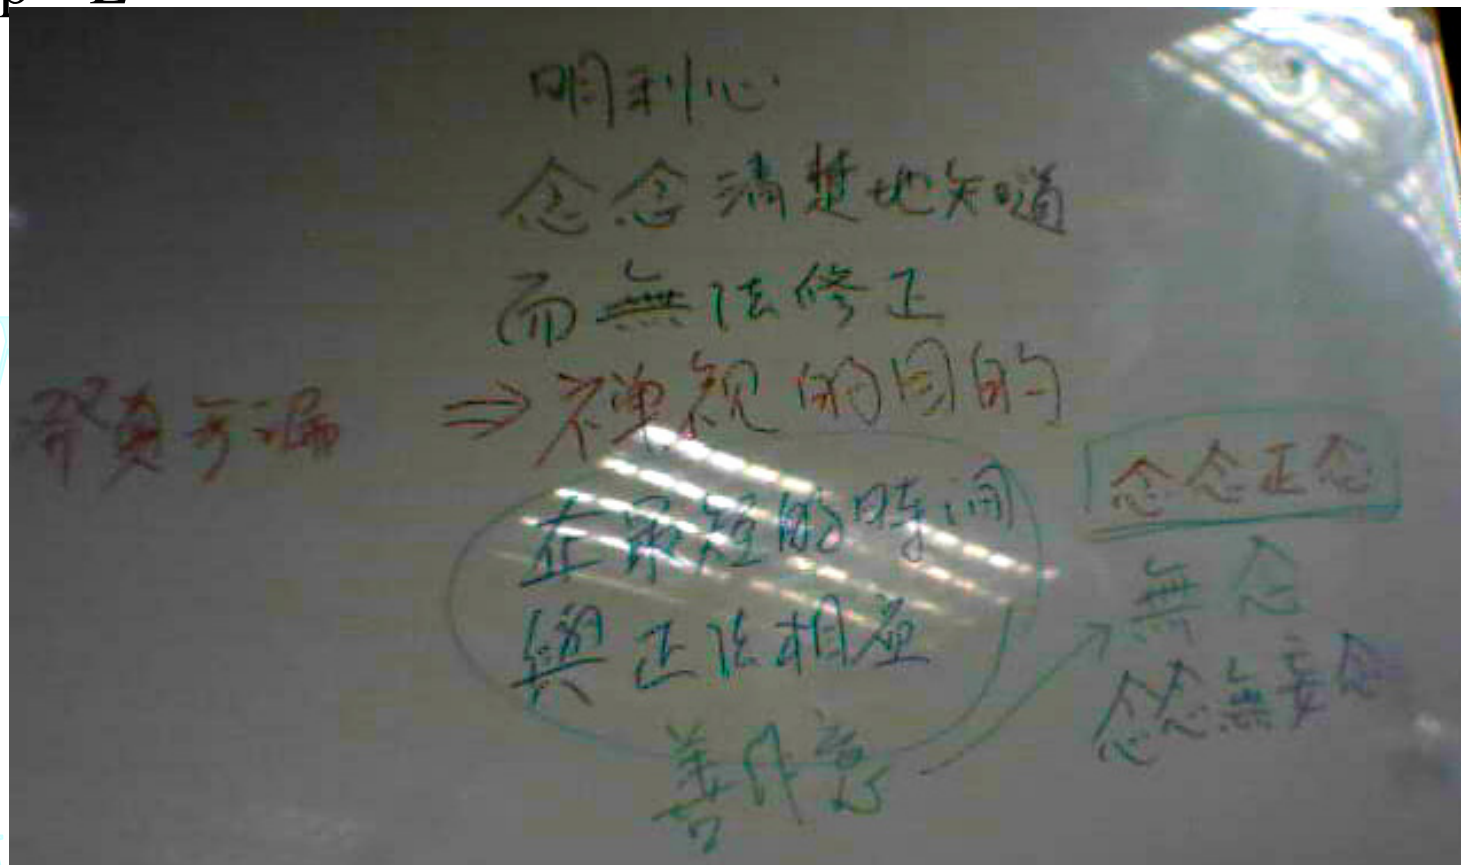 明利心
念念清楚地知道
而無法修正
⇒禪觀的目的
在最短的時間
與正法相應
善作意
念念正念
無念
念念無妄念